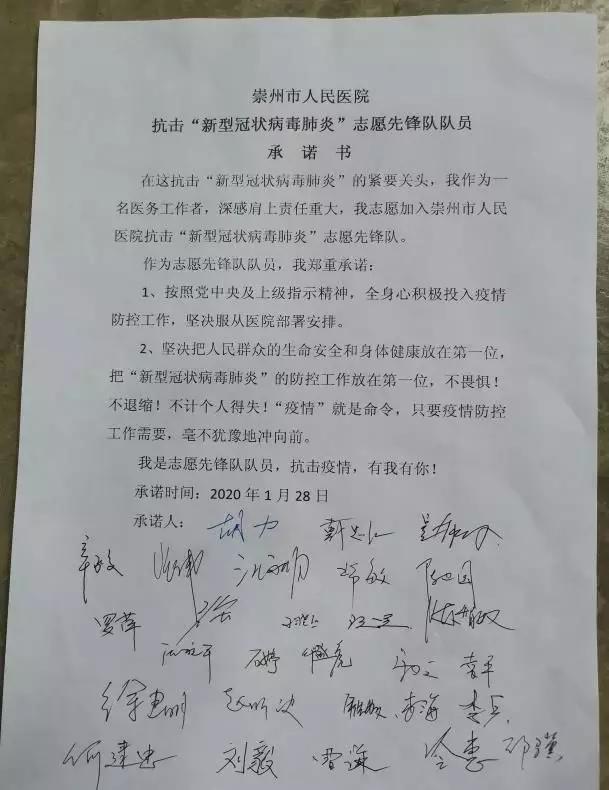 崇州市人民医院
抗击“新型冠状病毒肺炎”志愿先锋队队员
承 诺 书
在这抗击“新型冠状病毒肺炎”的紧要关头，我作为一
名医务工作者，深感肩上责任重大，我志愿加入崇州市人民
医院抗击“新型冠状病毒肺炎”志愿先锋队。
作为志愿先锋队队员，我郑重承诺：
1、按照党中央及上级指示精神，全身心积极投入疫情
防控工作，坚决服从医院部署安排。
2、坚决把人民群众的生命安全和身体健康放在第一位，
把“新型冠状病毒肺炎”的防控工作放在第一位，不畏惧！
不退缩！不计个人得失！“疫情”就是命令，只要疫情防控
工作需要，毫不犹豫地冲向前。
我是志愿先锋队队员，抗击疫情，有我有你！
承诺时间：2020 年 1 月 28 日
承诺人： 胡力
邓敏
罗萍
李海
何建忠 刘毅